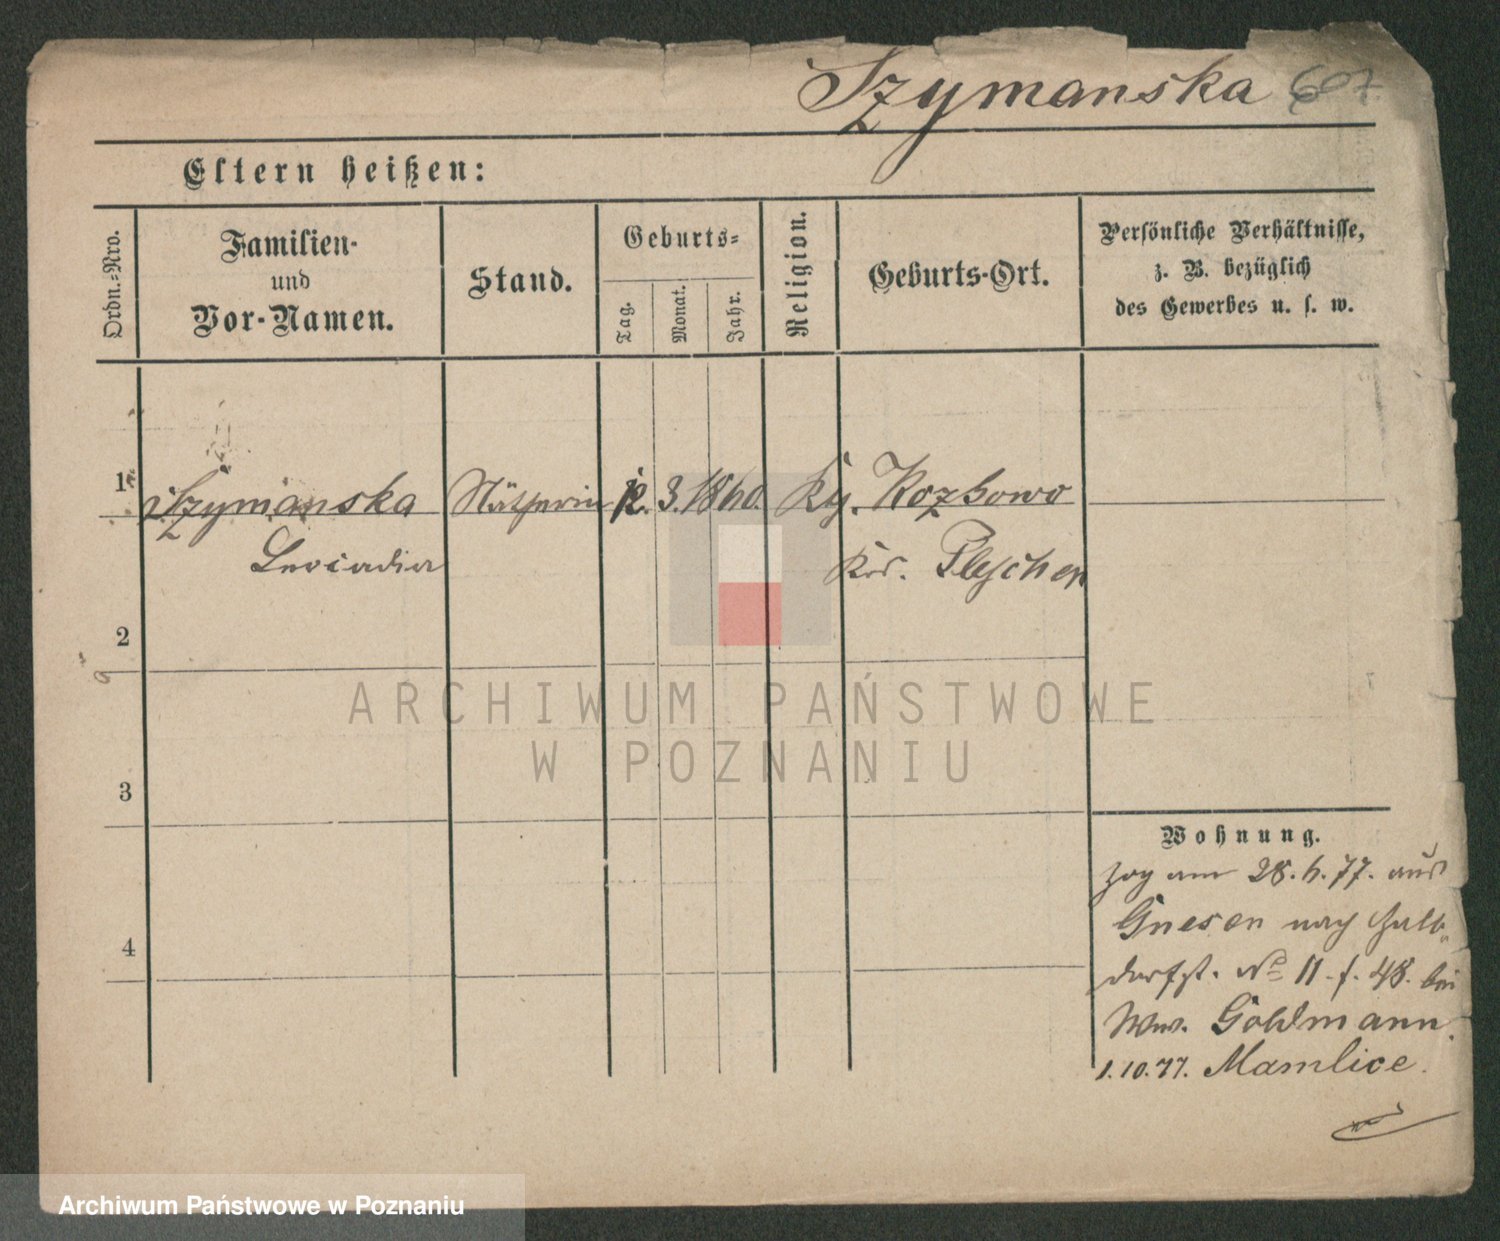 Szymanska 607
Eltern heißen:
Ordn.-Nro.
Familien-
und
Vor-Namen.
Stand.
Geburts-
Tag.
Monat.
Jahr.
Religion.
Geburts-Ort.
Persönliche Verhältnisse,
z. B. bezüglich
des Gewerbes u. s. w.
1 Szymanska Näherin 3. 1860. Kozlowo
Leocadia Krs. Pleschen
2
3
4
ARCHIWUM PAŃSTWOWE
W POZNANIU
Wohnung.
zog am 28.6.77. aus
Gnesen nach Halb-
dorfst. No 11 f. 48. bei
Ww. Gohlmann.
1.10.77. Mamlice.
Archiwum Państwowe w Poznaniu